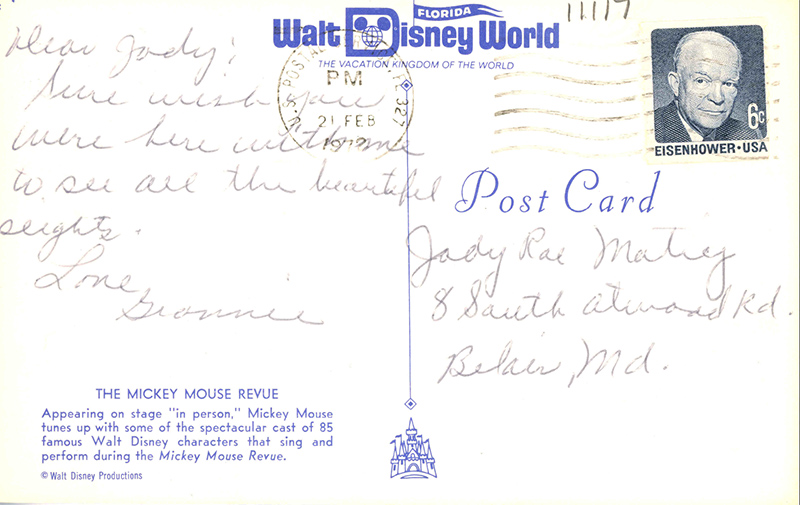 11117
FLORIDA
Walt Disney World
THE VACATION KINGDOM OF THE WORLD
PM
21 FEB
327
6c
EISENHOWER·USA
Dear Jody;
Sure wish you
were here with me
to see all the beautiful
seights.
Love,
Post Card
Jody Rae
8 South Atwood Rd.
Belair, Md.
THE MICKEY MOUSE REVUE
Appearing on stage "in person," Mickey Mouse
tunes up with some of the spectacular cast of 85
famous Walt Disney characters that sing and
perform during the Mickey Mouse Revue.
© Walt Disney Productions